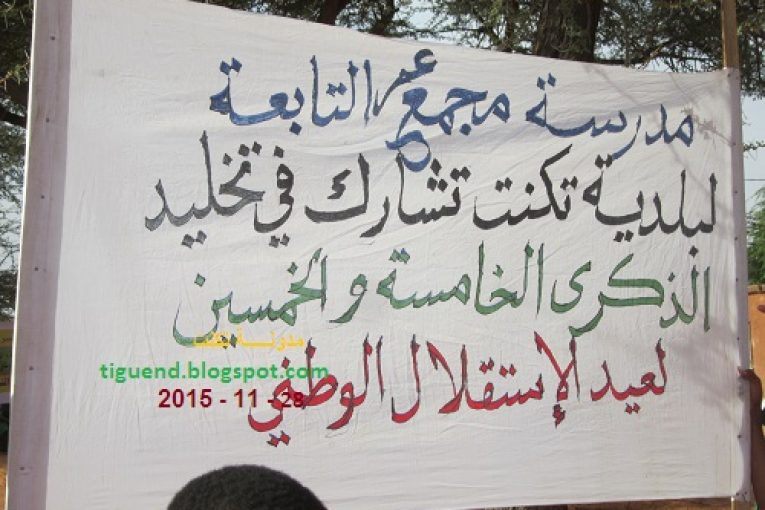 مدرسة مجمع عمر التابعة
لبلدية تكنت تشارك في تخليد
الذكرى الخامسة والخمسين
لعيد الإستقلال الوطني
مدونة تكنت
tiguend.blogspot.com
2015 - 11 - 28